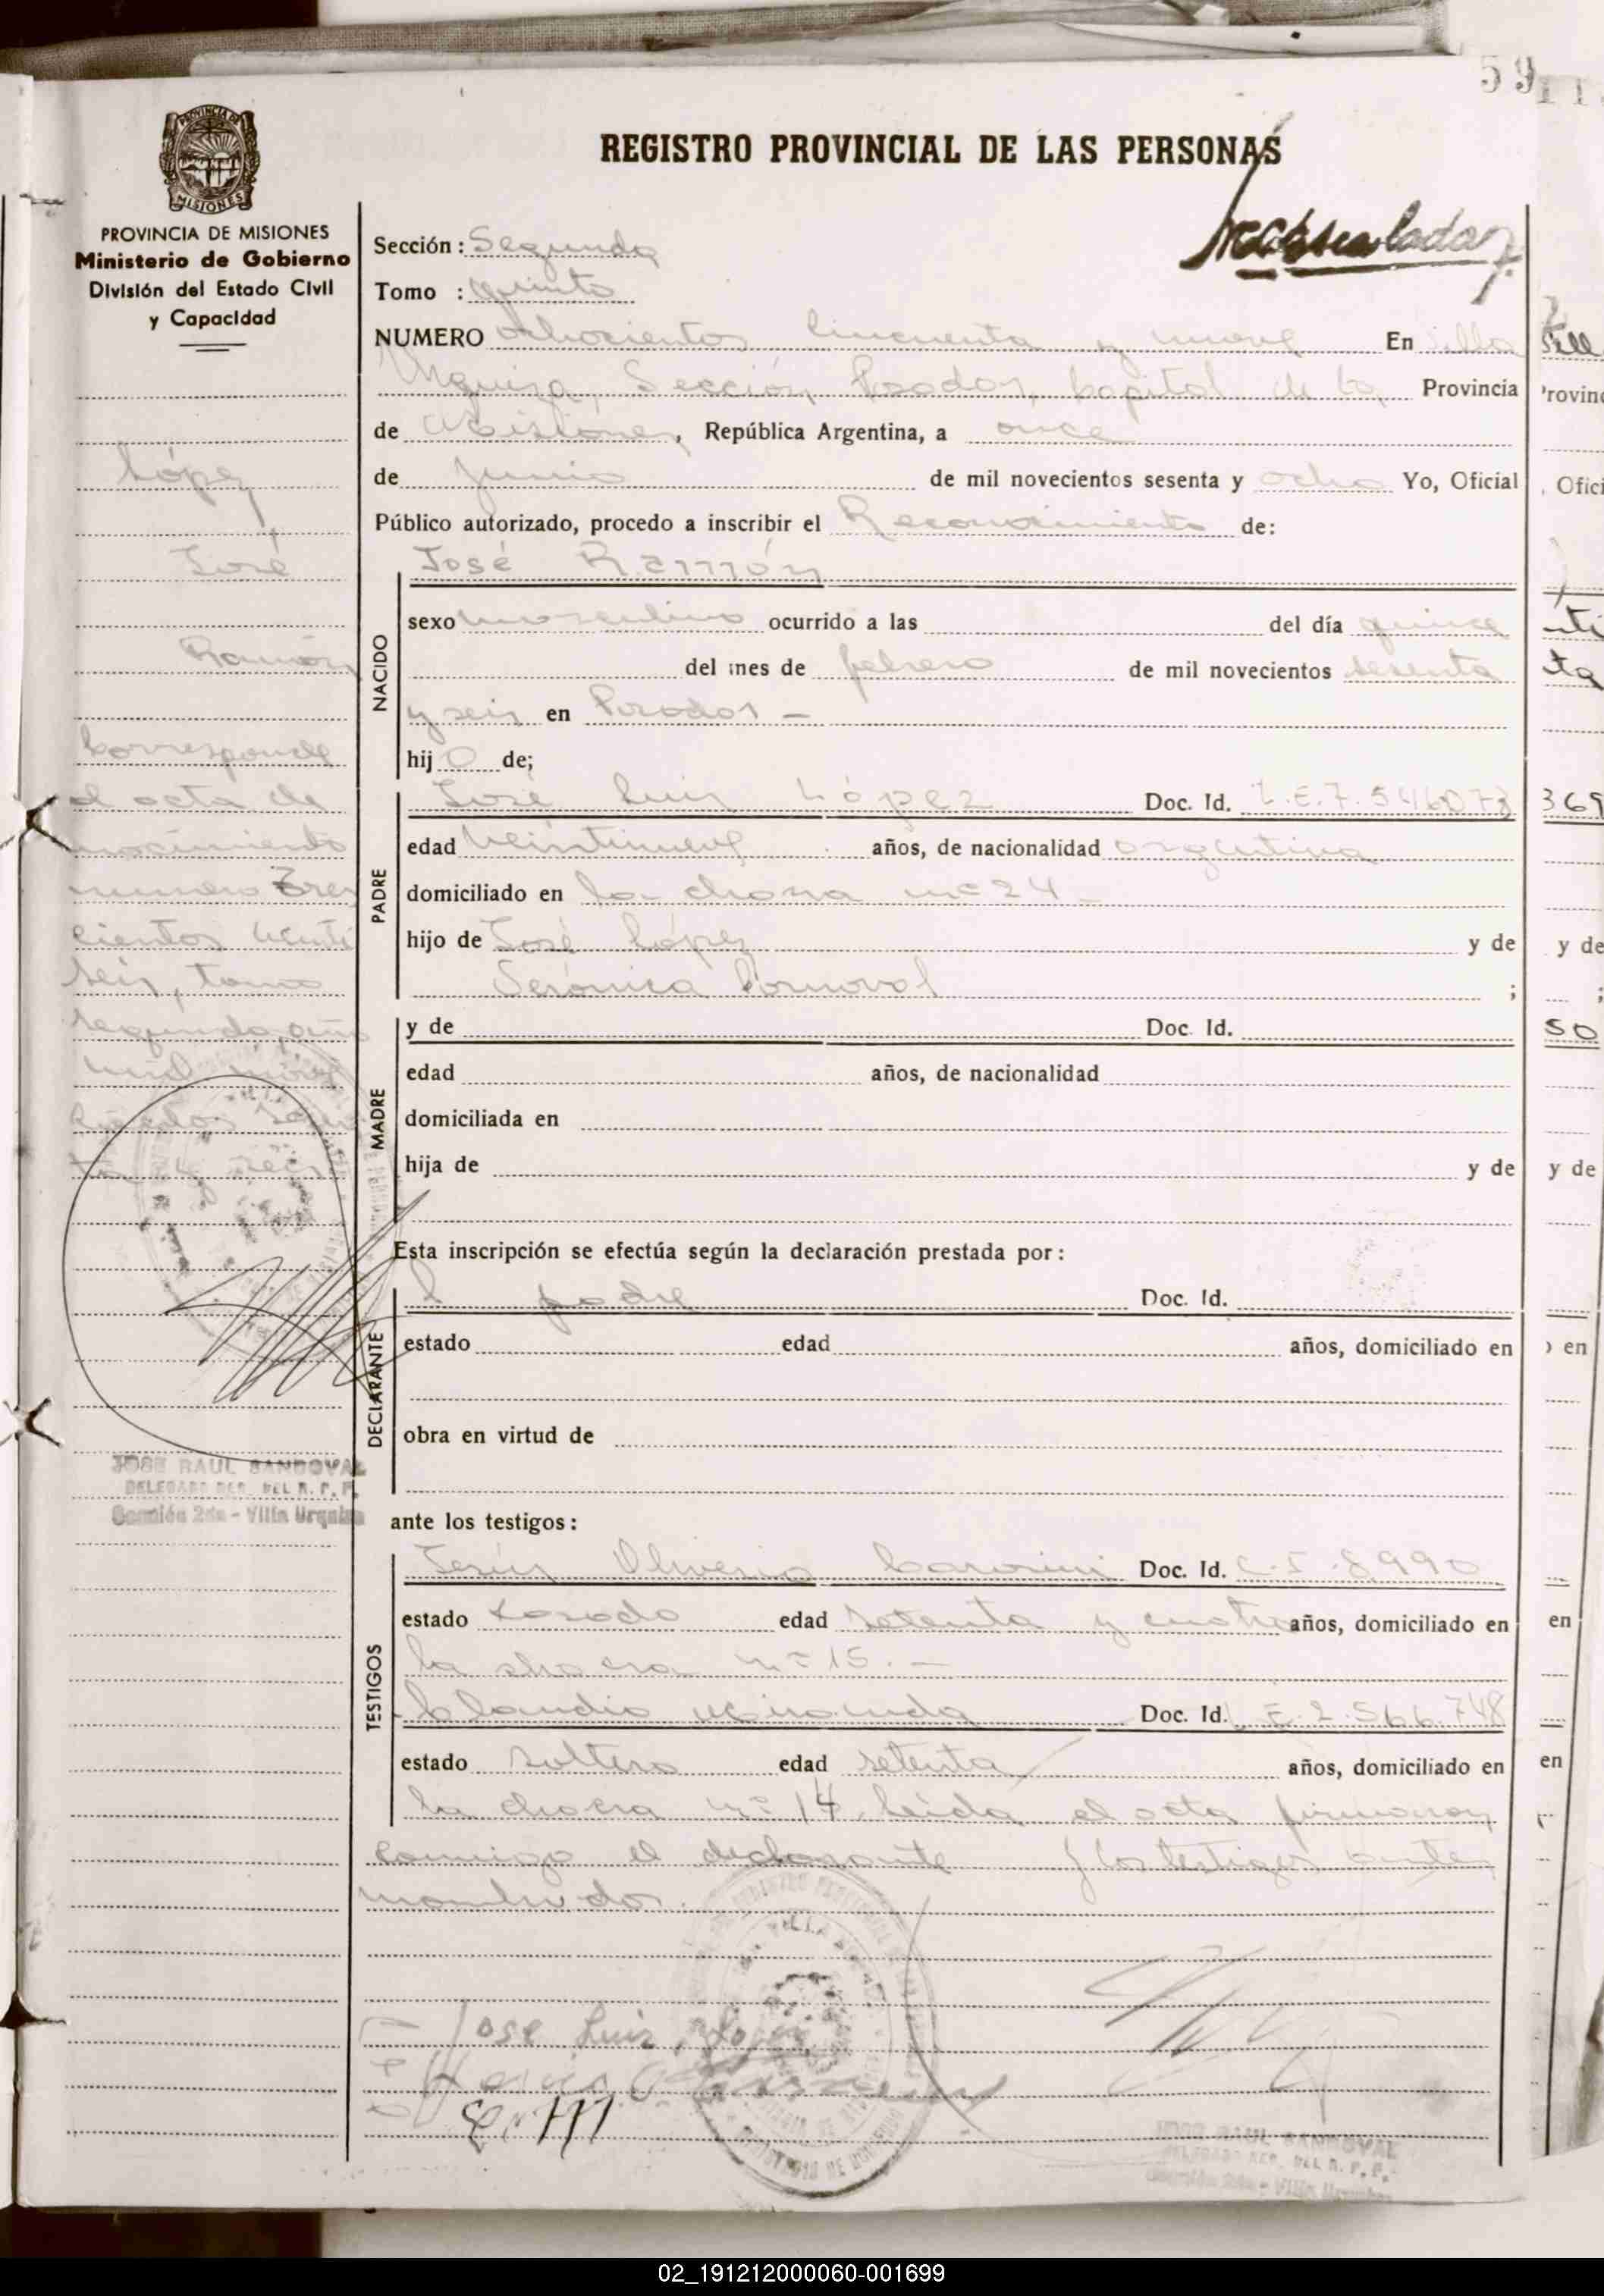 59
PROVINCIA DE
MISIONES
REGISTRO PROVINCIAL DE LAS PERSONAS
PROVINCIA DE MISIONES
Ministerio de Gobierno
División del Estado Civil
y Capacidad
Sección: Segunda
Tomo : Quinto
NUMERO ochocientos cincuenta y nueve En Villa
Urquiza, Sección Posadas, Capital de la Provincia
de Misiones, República Argentina, a once
de Junio de mil novecientos sesenta y ocho Yo, Oficial
Público autorizado, procedo a inscribir el Reconocimiento de:
José Ramón
NACIDO
sexo masculino ocurrido a las del día quince
del mes de febrero de mil novecientos sesenta
y seis en Posadas -
hijo de;
PADRE
José Luis López Doc. Id. L.E.7.546.073
edad veintinueve años, de nacionalidad argentina
domiciliado en la chacra nº 24 -
hijo de José López y de
Verónica ;
MADRE
y de Doc. Id.
edad años, de nacionalidad
domiciliada en
hija de y de
Esta inscripción se efectúa según la declaración prestada por:
DECLARANTE
padre Doc. Id.
estado edad años, domiciliado en
obra en virtud de
ante los testigos:
TESTIGOS
Jesús Oliverio Doc. Id. C.I. 8.990
estado casado edad setenta y cuatro años, domiciliado en
la chacra nº 15. -
Claudio Miranda Doc. Id. L.E. 2.566.748
estado soltero edad setenta años, domiciliado en
la chacra nº 14. Leída el acta firmaron
conmigo el declarante y los testigos ante
nombrados.
Jose Luis Lopez
López
José
Ramón
Corresponde
al acta de
nacimiento
numero Tres
cientos veinti
seis, tomo
segundo, año
mil nove
cientos sesen
ta y seis
JOSE RAUL SANDOVAL
DELEGADO REG. DEL R. P. P.
Sección 2da - Villa Urquiza
JOSE RAUL SANDOVAL
DELEGADO REG. DEL R. P. P.
Sección 2da - Villa Urquiza
02_191212000060-001699